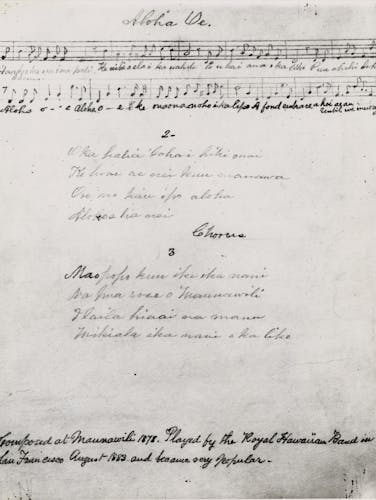 Aloha Oe.
Haaheo ka ua i na pali Ke nihi ae la i ka nahele E uhai ana i ka liko Pua ahihi lehua
Aloha o-e aloha o-e E ke onaona noho i ka lipo A fond embrace a hoi ae au
Until we meet
2-
O ka halia aloha i hiki mai
Ke hone ae nei kuu manawa
O oe no kuu ipo aloha
A loko e hana nei
Chorus
3
Maopopo kuu ike i ka nani
Na pua rose o Maunawili
I laila hiaai na manu
Mikiala i ka nani o ka liko
Composed at Maunawili 1878. Played by the Royal Hawaiian Band in
San Francisco August 1883 and became very popular.